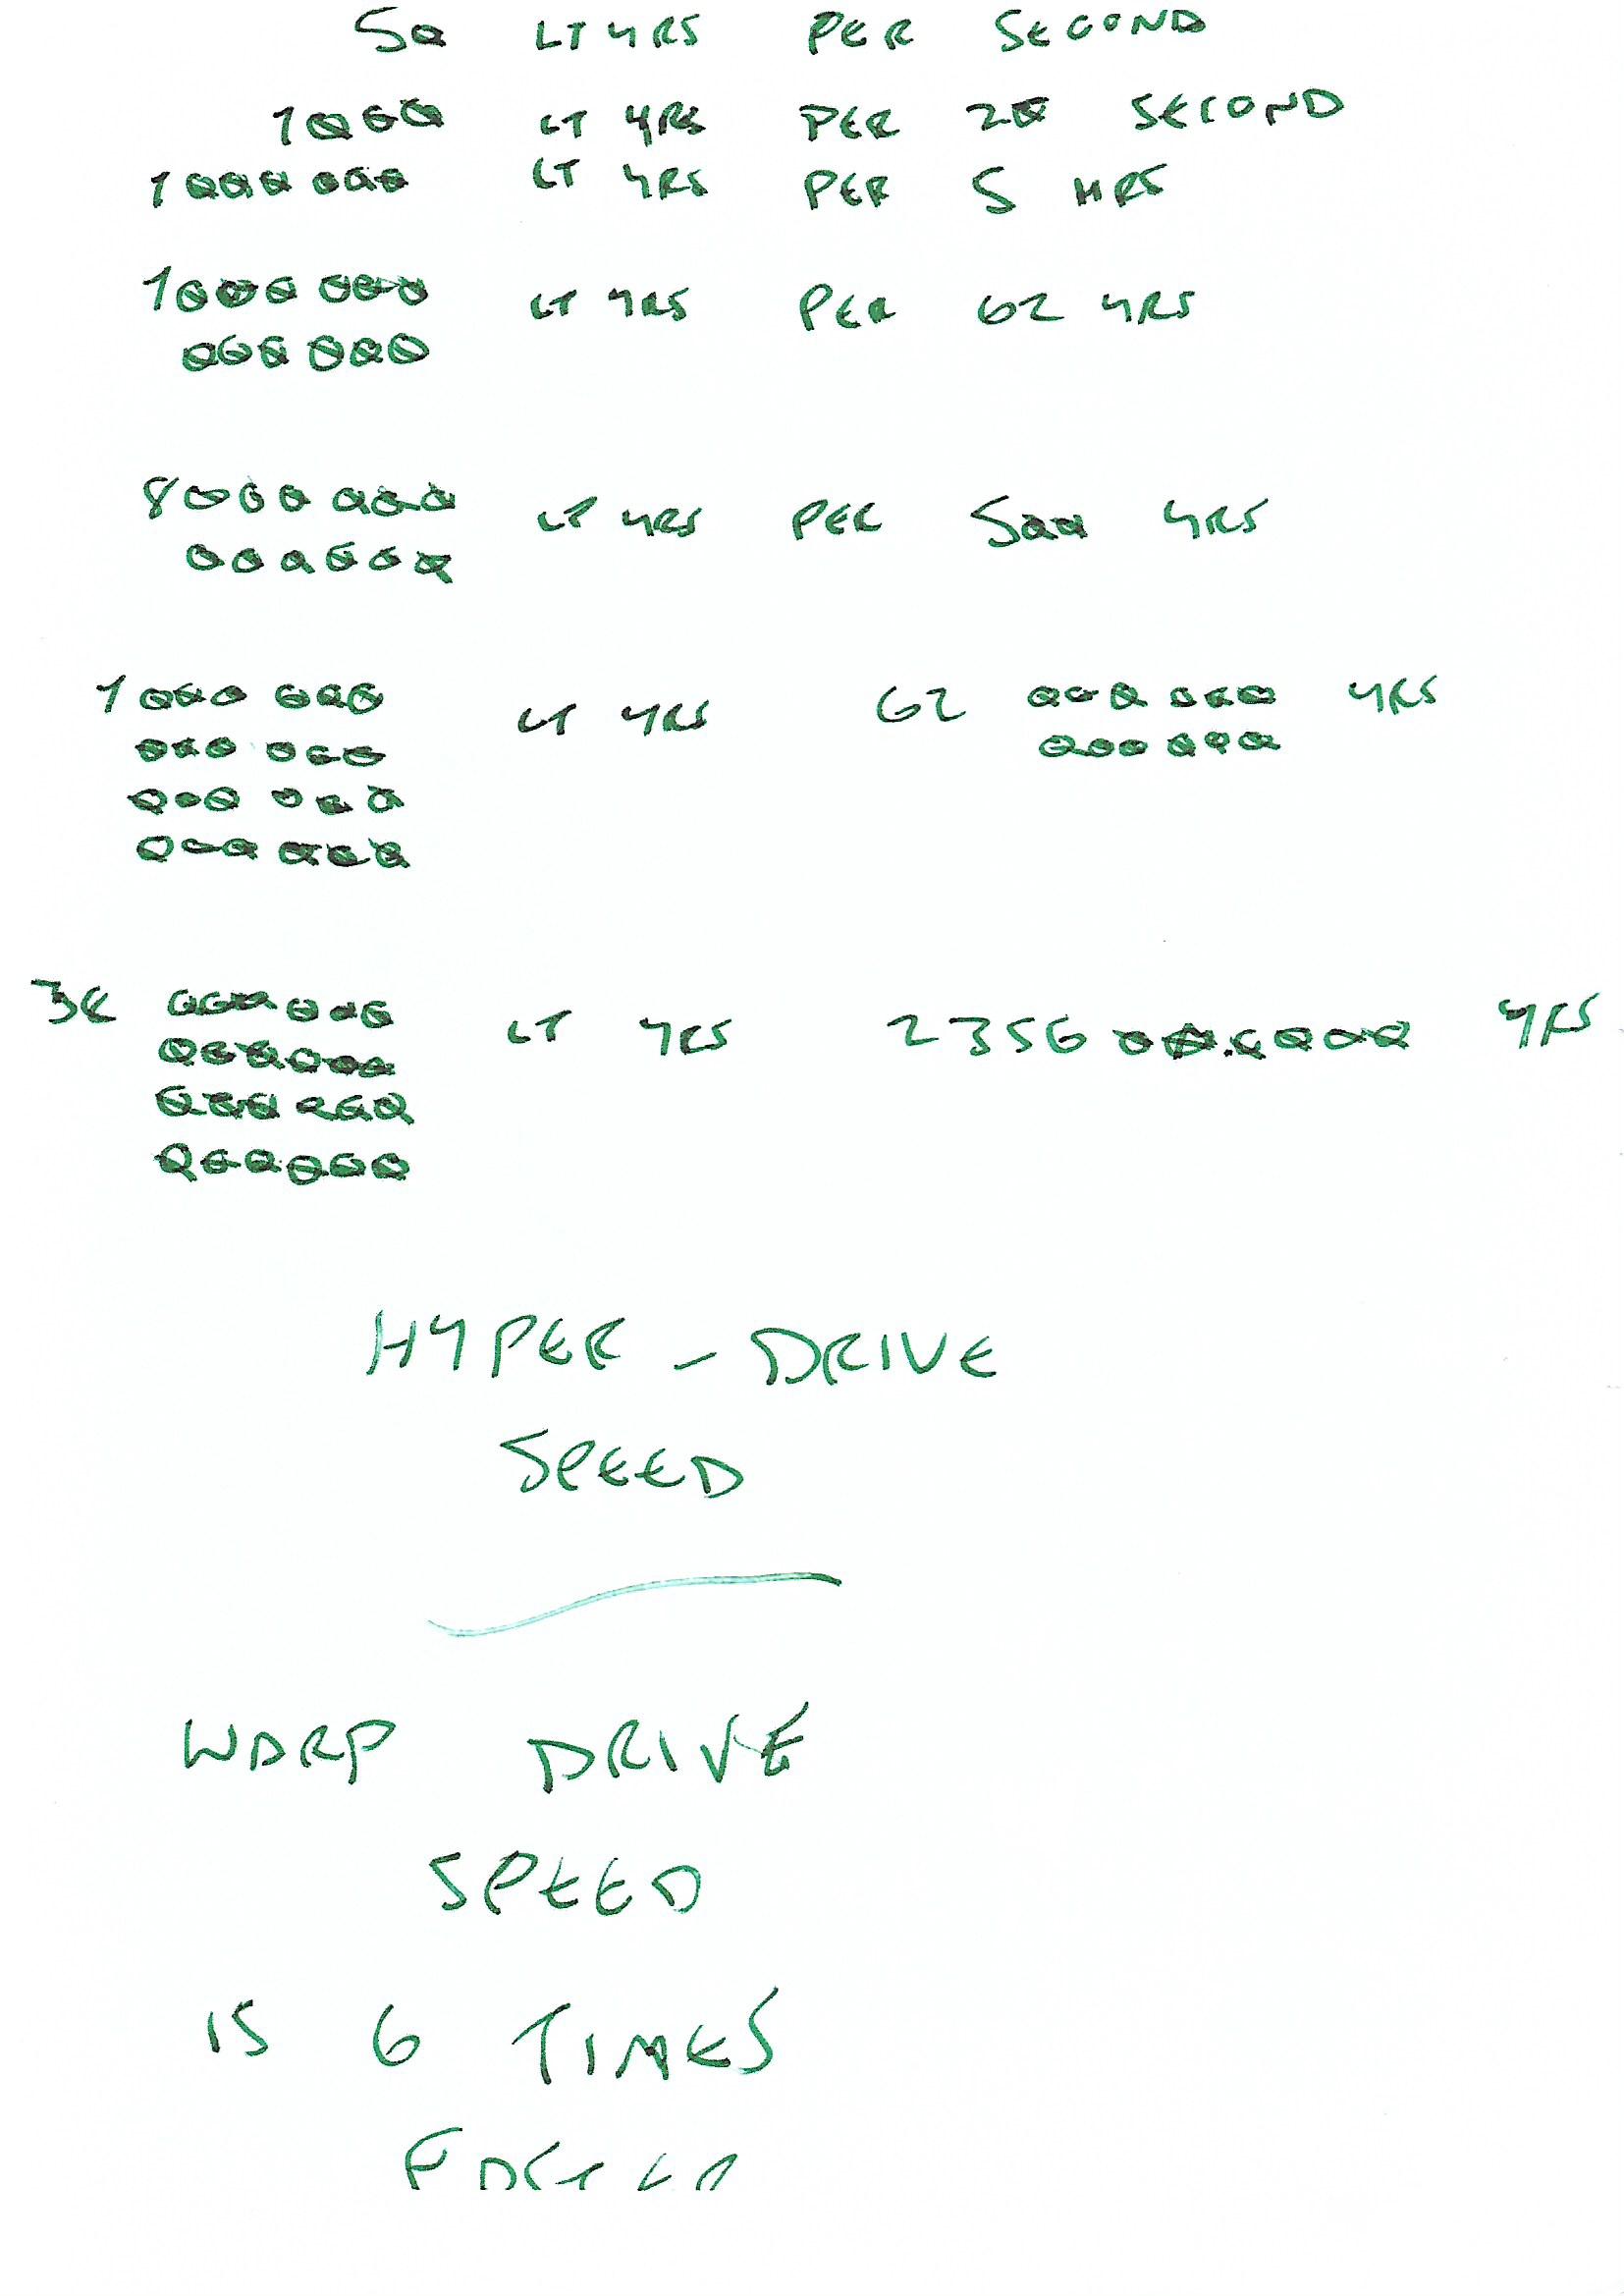 50 LT YRS PER SECOND
1000 LT YRS PER 20 SECOND
1000 000 LT YRS PER 5 HRS
1000 000 LT YRS PER 62 YRS
000 000
8000 000 LT YRS PER 500 YRS
000000
1000 000 LT YRS 62 000 000 YRS
000 000 000 000
000 000
000 000
000000 LT YRS 2356 000000 YRS
000000
000 000
000000
HYPER - DRIVE
SPEED
WARP DRIVE
SPEED
IS 6 TIMES
FASTER